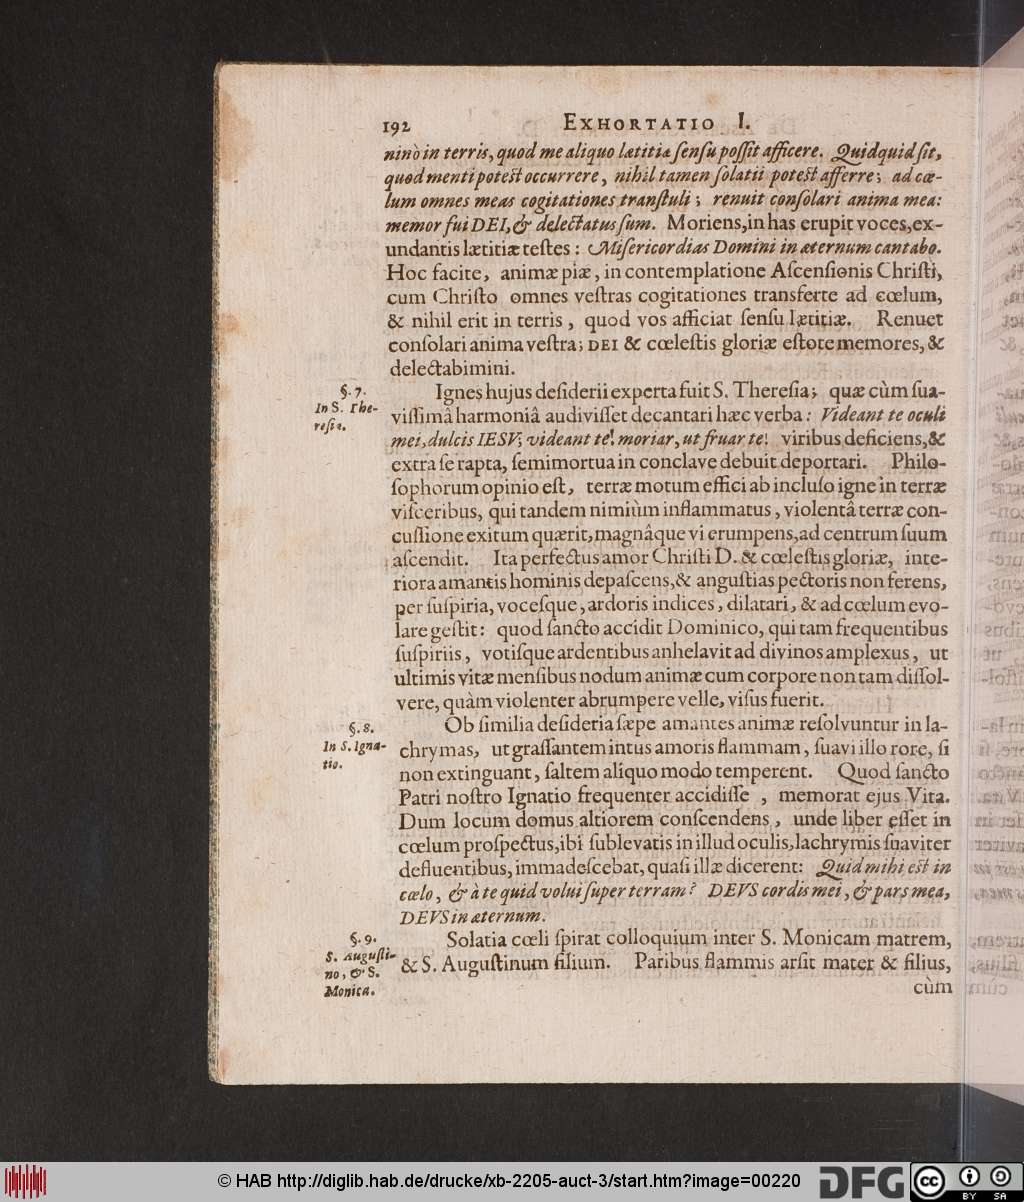 192 EXHORTATIO I.
ninò in terris, quod me aliquo lætitiæ ſenſu poſſit afficere. Quidquid ſit,
quod menti poteſt occurrere, nihil tamen ſolatii poteſt afferre; ad cœ-
lum omnes meas cogitationes tranſtuli; renuit conſolari anima mea:
memor fui DEI, & delectatus ſum. Moriens, in has erupit voces, ex-
undantis lætitiæ teſtes: Miſericordias Domini in æternum cantabo.
Hoc facite, animæ piæ, in contemplatione Aſcenſionis Chriſti,
cum Chriſto omnes veſtras cogitationes transferte ad cœlum,
& nihil erit in terris, quod vos afficiat ſenſu lætitiæ. Renuet
conſolari anima veſtra; DEI & cœleſtis gloriæ eſtote memores, &
delectabimini.
§. 7.
In S. The-
reſia.
Ignes hujus deſiderii experta fuit S. Thereſia; quæ cùm ſua-
viſſimâ harmoniâ audiviſſet decantari hæc verba: Videant te oculi
mei, dulcis IESV; videant te! moriar, ut fruar te! viribus deficiens, &
extra ſe rapta, ſemimortua in conclave debuit deportari. Philo-
ſophorum opinio eſt, terræ motum effici ab incluſo igne in terræ
viſceribus, qui tandem nimiùm inflammatus, violentâ terræ con-
cuſſione exitum quærit, magnâque vi erumpens, ad centrum ſuum
aſcendit. Ita perfectus amor Chriſti D. & cœleſtis gloriæ, inte-
riora amantis hominis depaſcens, & anguſtias pectoris non ferens,
per ſuſpiria, voceſque, ardoris indices, dilatari, & ad cœlum evo-
lare geſtit: quod ſancto accidit Dominico, qui tam frequentibus
ſuſpiriis, votiſque ardentibus anhelavit ad divinos amplexus, ut
ultimis vitæ menſibus nodum animæ cum corpore non tam diſſol-
vere, quàm violenter abrumpere velle, viſus fuerit.
§. 8.
In S. Igna-
tio.
Ob ſimilia deſideria ſæpe amantes animæ reſolvuntur in la-
chrymas, ut graſſantem intus amoris flammam, ſuavi illo rore, ſi
non extinguant, ſaltem aliquo modo temperent. Quod ſancto
Patri noſtro Ignatio frequenter accidiſſe, memorat ejus Vita.
Dum locum domus altiorem conſcendens, unde liber eſſet in
cœlum proſpectus, ibi ſublevatis in illud oculis, lachrymis ſuaviter
defluentibus, immadeſcebat, quaſi illæ dicerent: Quid mihi eſt in
cœlo, & à te quid volui ſuper terram? DEVS cordis mei, & pars mea,
DEVS in æternum.
§. 9.
S. Auguſti-
no, & S.
Monica.
Solatia cœli ſpirat colloquium inter S. Monicam matrem,
& S. Auguſtinum filium. Paribus flammis arſit mater & filius,
cùm
© HAB http://diglib.hab.de/drucke/xb-2205-auct-3/start.htm?image=00220
DFG
cc BY SA